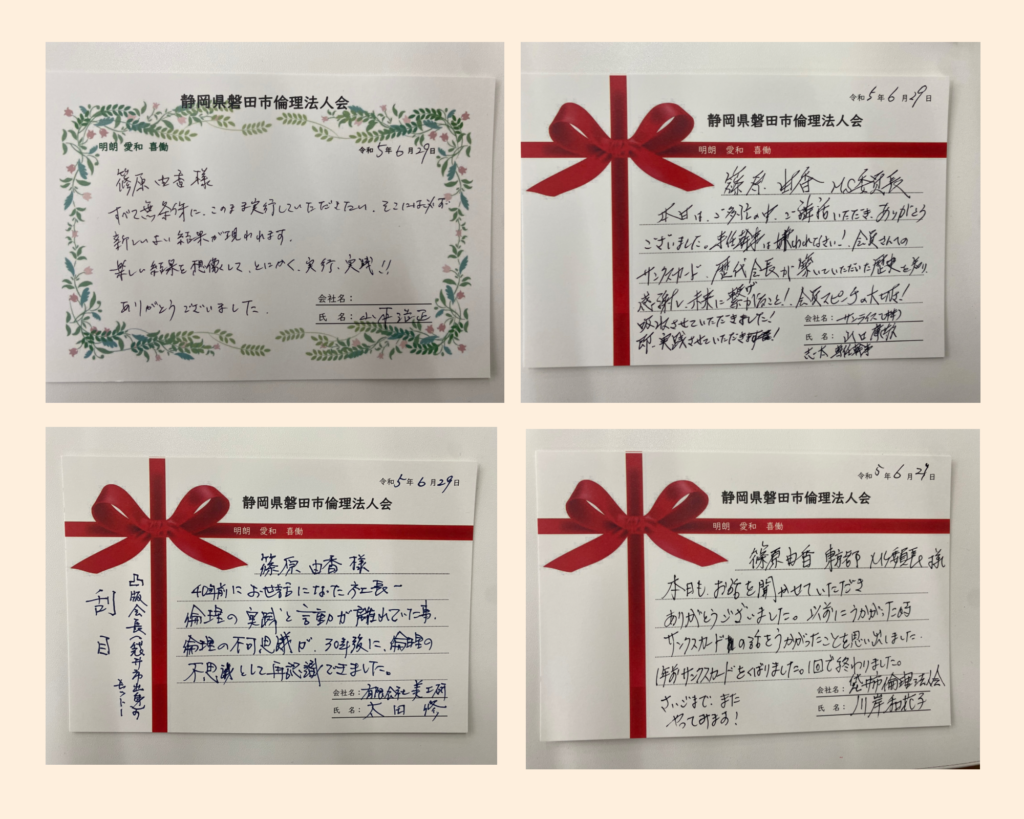 静岡県磐田市倫理法人会
明朗 愛和 喜働
令和5年6月29日
篠原由香様
すべて無条件に、このまま実行していただてたい、そこには必ず
新しいよい結果が現われます。
楽しい結果を想像して、とにかく、実行、実践!!
ありがとうございました。
会社名:
氏名:
令和5年6月29日
静岡県磐田市倫理法人会
明朗 愛和 喜働
篠原 由香 MS委員長
本日は、ご多忙の中、ご講話いただき、ありがとう
ございました。専任幹事は嫌われなさい!、会員さんへの
サンクスカード、歴代会長が築いていただいた歴史を知り、
感謝し、未来に繋げること!、会員スピーチの大切!
吸収させていただきました!
即、実践させていただきます!
会社名:サンライズ(株)
氏名:山口
専任幹事
令和5年6月29日
静岡県磐田市倫理法人会
明朗 愛和 喜働
篠原 由香 様
40年前にお世話になった社長ー
倫理の実践と言動が離れていた事、
倫理の不可思議が、30年後に、倫理の
不思議として再認識できました。
会社名:有限会社美工研
氏名:太田 修
凸版会長(袋井市出身)の
モットー
刮目
令和5年6月29日
静岡県磐田市倫理法人会
明朗 愛和 喜働
篠原由香 東部 MS委員長 様
本日も、お話を聞かせていただき
ありがとうございました。以前にうかがった時
サンクスカードの話をうかがったことを思い出しました。
1年前サンクスカードをくばりました。1回で終わりました。
さいごまで、また
やってみます!
会社名:袋井市倫理法人会
氏名:川岸和花子